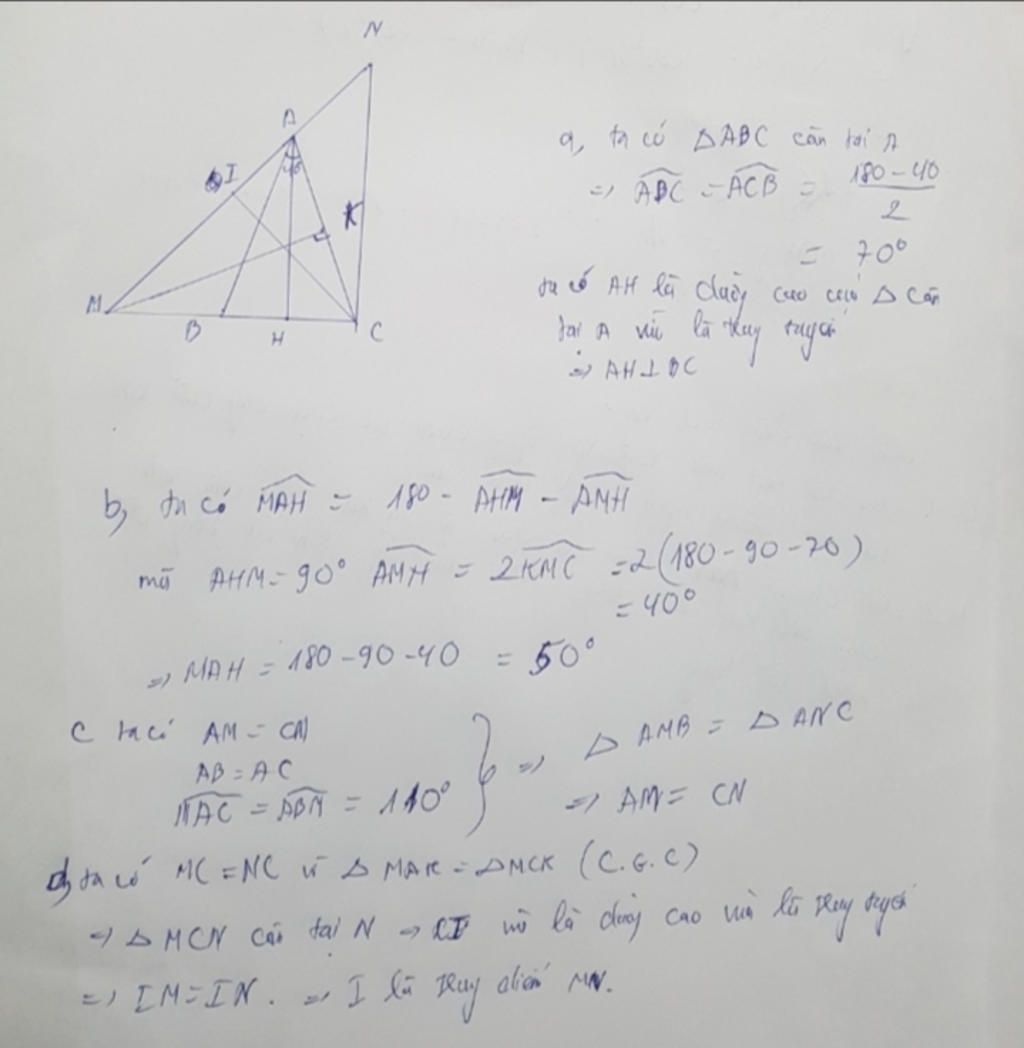 N
A
I
40
K
M
B
H
C
a, ta có △ABC cân tại A
=> ABC = ACB = 180-40
2
= 70°
ta có AH là đường cao của △ cân
tại A vừa là trung tuyến
=> AH⊥BC
b, ta có MAH = 180 - AHM - AMH
mà AHM = 90° AMH = 2KMC = 2(180-90-70)
= 40°
=> MAH = 180-90-40 = 50°
C ta có AM = CN
AB = AC
NAC = ABM = 110°
} => △ AMB = △ ANC
=> AM = CN
d, ta có MC = NC vì △ MAK = △MCK (C.G.C)
=> △ MCN cân tại N => CI vừa là đường cao vừa là trung tuyến
=> IM = IN. => I là trung điểm MN.